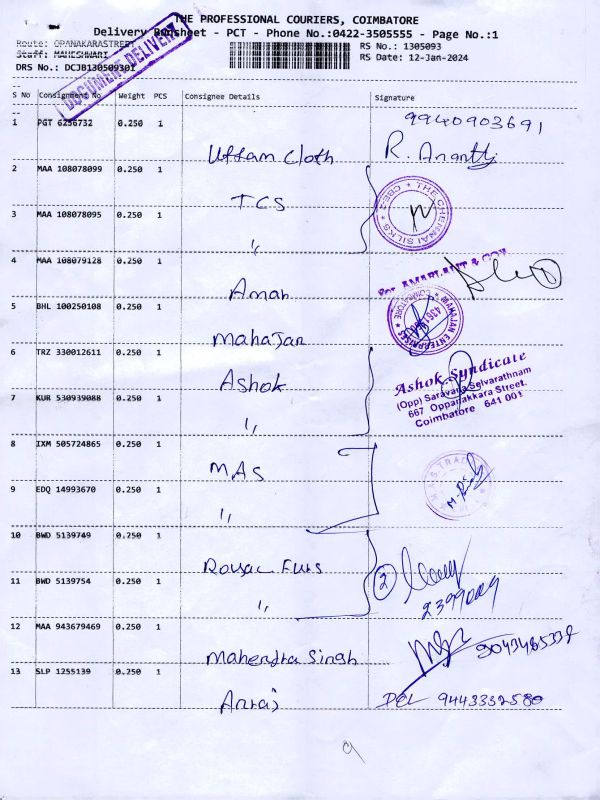 THE PROFESSIONAL COURIERS, COIMBATORE
Delivery Runsheet - PCT - Phone No.:0422-3505555 - Page No.:1
Route: OPANAKARASTREET
RS No.: 1305093
Staff: MAHESHWARI
RS Date: 12-Jan-2024
DRS No.: DCJB130509301
DOCUMENT DELIVERY
S No Consignment No Weight PCS Consignee Details Signature
1 PGT 6256732 0.250 1
9940903691
Uttam Cloth R. Ananth
2 MAA 108078099 0.250 1
TCS
THE CHENNAI SILKS * CBE-2 *
3 MAA 108078095 0.250 1
"
4 MAA 108079128 0.250 1
Aman
For AMARLANT & CO.
5 BHL 100250108 0.250 1
Mahajan
MAHAJAN ENTERPRISES * COIMBATORE *
6 TRZ 330012611 0.250 1
Ashok
Ashok Syndicate
(Opp) Saravana Selvarathnam
667 Oppanakkara Street.
Coimbatore 641 001
7 KUR 530939088 0.250 1
"
8 IXM 505724865 0.250 1
MAS
9 EDQ 14993670 0.250 1
"
10 BWD 5139749 0.250 1
Royal Furs
2
11 BWD 5139754 0.250 1
"
2399009
12 MAA 943679469 0.250 1
Mahendra Singh
9043465338
13 SLP 1255139 0.250 1
Anraj
9443332580
9